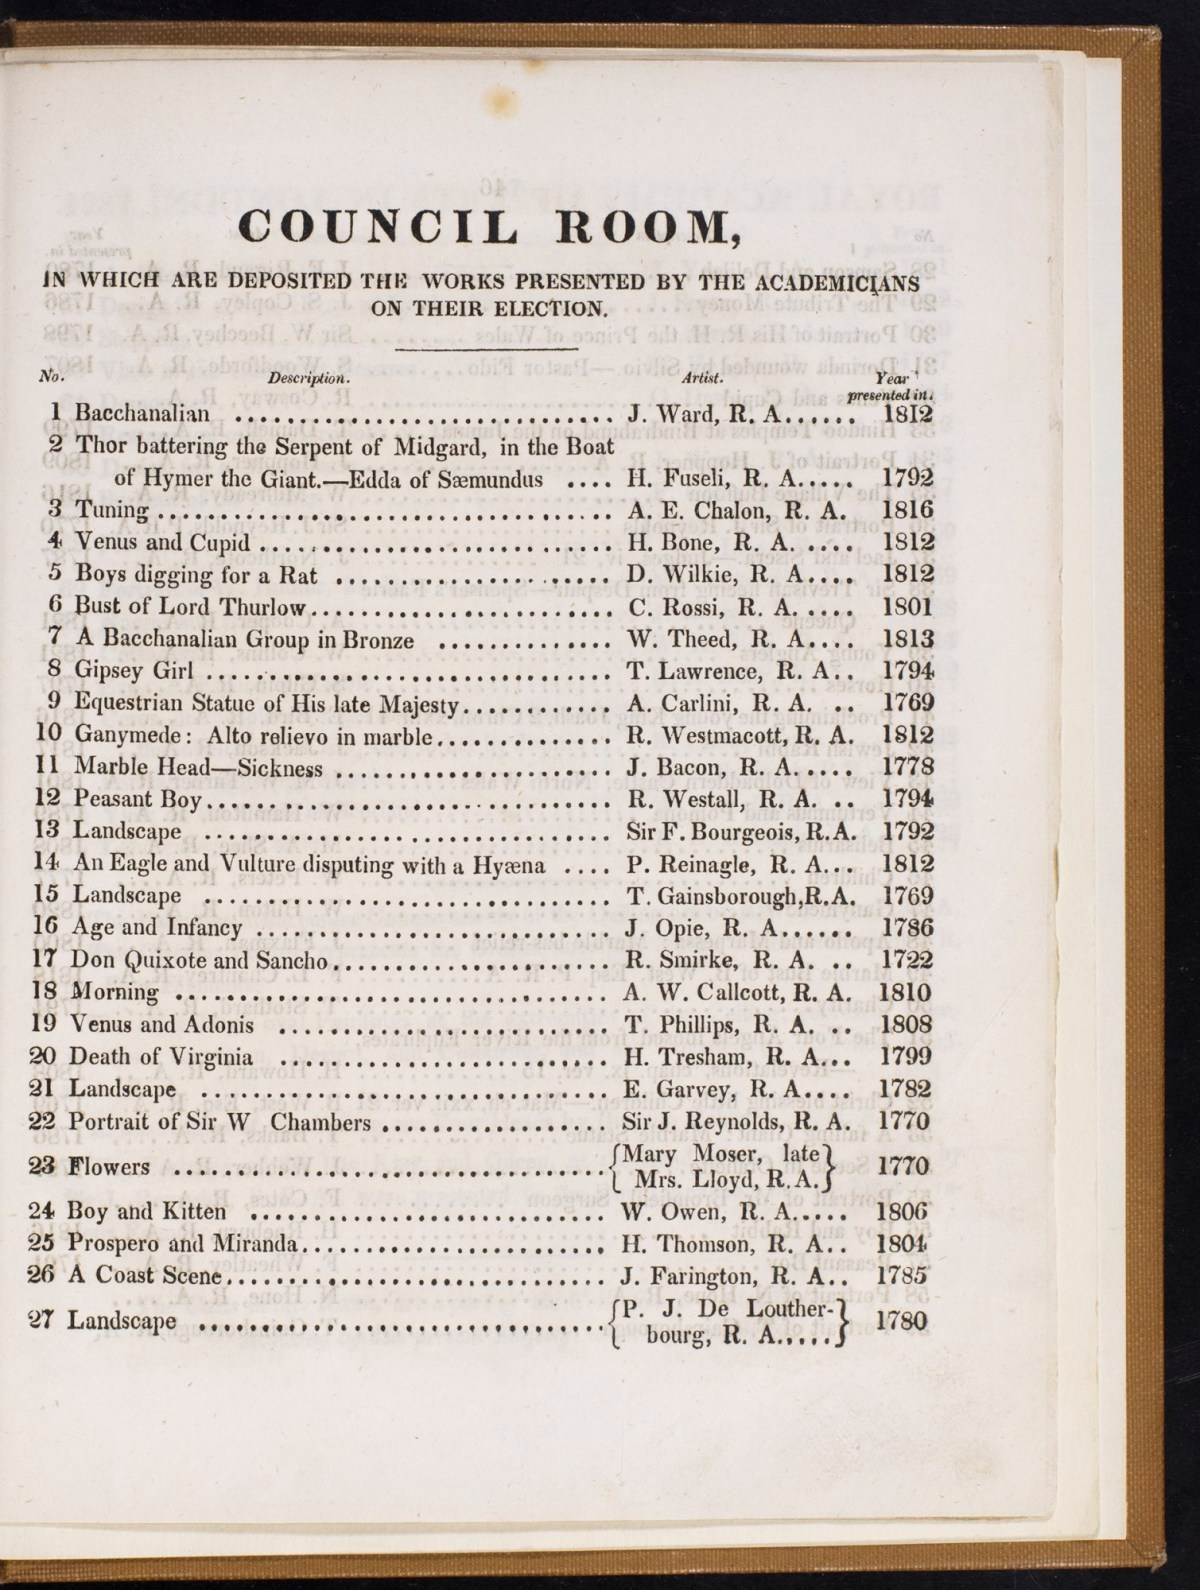 COUNCIL ROOM,
IN WHICH ARE DEPOSITED THE WORKS PRESENTED BY THE ACADEMICIANS
ON THEIR ELECTION.
No. Description. Artist. Year presented in.
1 Bacchanalian ................................ J. Ward, R. A...... 1812
2 Thor battering the Serpent of Midgard, in the Boat
of Hymer the Giant.—Edda of Sæmundus .... H. Fuseli, R. A..... 1792
3 Tuning ...................................... A. E. Chalon, R. A. 1816
4 Venus and Cupid ............................. H. Bone, R. A. .... 1812
5 Boys digging for a Rat ...................... D. Wilkie, R. A.... 1812
6 Bust of Lord Thurlow......................... C. Rossi, R. A. .... 1801
7 A Bacchanalian Group in Bronze .............. W. Theed, R. A.... 1813
8 Gipsey Girl ................................. T. Lawrence, R. A.. 1794
9 Equestrian Statue of His late Majesty............ A. Carlini, R. A. .. 1769
10 Ganymede: Alto relievo in marble.............. R. Westmacott, R. A. 1812
11 Marble Head—Sickness ...................... J. Bacon, R. A. .... 1778
12 Peasant Boy................................. R. Westall, R. A. .. 1794
13 Landscape ................................. Sir F. Bourgeois, R.A. 1792
14 An Eagle and Vulture disputing with a Hyæna .... P. Reinagle, R. A... 1812
15 Landscape ................................. T. Gainsborough, R.A. 1769
16 Age and Infancy ............................. J. Opie, R. A...... 1786
17 Don Quixote and Sancho...................... R. Smirke, R. A. .. 1722
18 Morning ................................... A. W. Callcott, R. A. 1810
19 Venus and Adonis ........................... T. Phillips, R. A. .. 1808
20 Death of Virginia ........................... H. Tresham, R. A... 1799
21 Landscape ................................. E. Garvey, R. A.... 1782
22 Portrait of Sir W Chambers .................. Sir J. Reynolds, R. A. 1770
23 Flowers ................................... {Mary Moser, late Mrs. Lloyd, R.A.} 1770
24 Boy and Kitten ............................. W. Owen, R. A..... 1806
25 Prospero and Miranda......................... H. Thomson, R. A.. 1804
26 A Coast Scene............................... J. Farington, R. A.. 1785
27 Landscape ................................. {P. J. De Loutherbourg, R. A.....} 1780